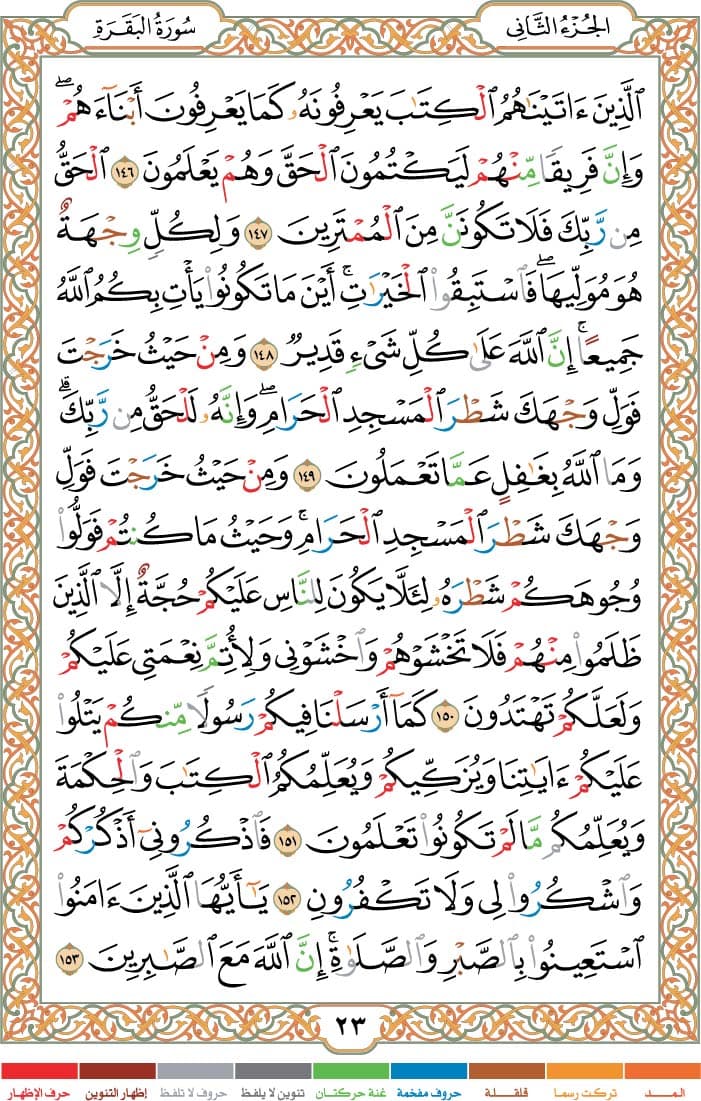 الجُزْءُ الثَّانِي
سُورَةُ البَقَرَةِ
ٱلَّذِينَ ءَاتَيْنَٰهُمُ ٱلْكِتَٰبَ يَعْرِفُونَهُۥ كَمَا يَعْرِفُونَ أَبْنَآءَهُمْ ۖ
وَإِنَّ فَرِيقًا مِّنْهُمْ لَيَكْتُمُونَ ٱلْحَقَّ وَهُمْ يَعْلَمُونَ ١٤٦ ٱلْحَقُّ
مِن رَّبِّكَ فَلَا تَكُونَنَّ مِنَ ٱلْمُمْتَرِينَ ١٤٧ وَلِكُلٍّ وِجْهَةٌ
هُوَ مُوَلِّيهَا ۖ فَٱسْتَبِقُوا۟ ٱلْخَيْرَٰتِ ۚ أَيْنَ مَا تَكُونُوا۟ يَأْتِ بِكُمُ ٱللَّهُ
جَمِيعًا ۚ إِنَّ ٱللَّهَ عَلَىٰ كُلِّ شَىْءٍ قَدِيرٌ ١٤٨ وَمِنْ حَيْثُ خَرَجْتَ
فَوَلِّ وَجْهَكَ شَطْرَ ٱلْمَسْجِدِ ٱلْحَرَامِ ۖ وَإِنَّهُۥ لَلْحَقُّ مِن رَّبِّكَ ۗ
وَمَا ٱللَّهُ بِغَٰفِلٍ عَمَّا تَعْمَلُونَ ١٤٩ وَمِنْ حَيْثُ خَرَجْتَ فَوَلِّ
وَجْهَكَ شَطْرَ ٱلْمَسْجِدِ ٱلْحَرَامِ ۚ وَحَيْثُ مَا كُنتُمْ فَوَلُّوا۟
وُجُوهَكُمْ شَطْرَهُۥ لِئَلَّا يَكُونَ لِلنَّاسِ عَلَيْكُمْ حُجَّةٌ إِلَّا ٱلَّذِينَ
ظَلَمُوا۟ مِنْهُمْ فَلَا تَخْشَوْهُمْ وَٱخْشَوْنِى وَلِأُتِمَّ نِعْمَتِى عَلَيْكُمْ
وَلَعَلَّكُمْ تَهْتَدُونَ ١٥٠ كَمَآ أَرْسَلْنَا فِيكُمْ رَسُولًا مِّنكُمْ يَتْلُوا۟
عَلَيْكُمْ ءَايَٰتِنَا وَيُزَكِّيكُمْ وَيُعَلِّمُكُمُ ٱلْكِتَٰبَ وَٱلْحِكْمَةَ
وَيُعَلِّمُكُم مَّا لَمْ تَكُونُوا۟ تَعْلَمُونَ ١٥١ فَٱذْكُرُونِىٓ أَذْكُرْكُمْ
وَٱشْكُرُوا۟ لِى وَلَا تَكْفُرُونِ ١٥٢ يَٰٓأَيُّهَا ٱلَّذِينَ ءَامَنُوا۟
ٱسْتَعِينُوا۟ بِٱلصَّبْرِ وَٱلصَّلَوٰةِ ۚ إِنَّ ٱللَّهَ مَعَ ٱلصَّٰبِرِينَ ١٥٣
٢٣
المــــد
تركت رسما
قلقــلة
حروف مفخمة
غنة حركتـان
تنوين لا يلفظ
حروف لا تلفظ
إظهار التنوين
حرف الإظهار